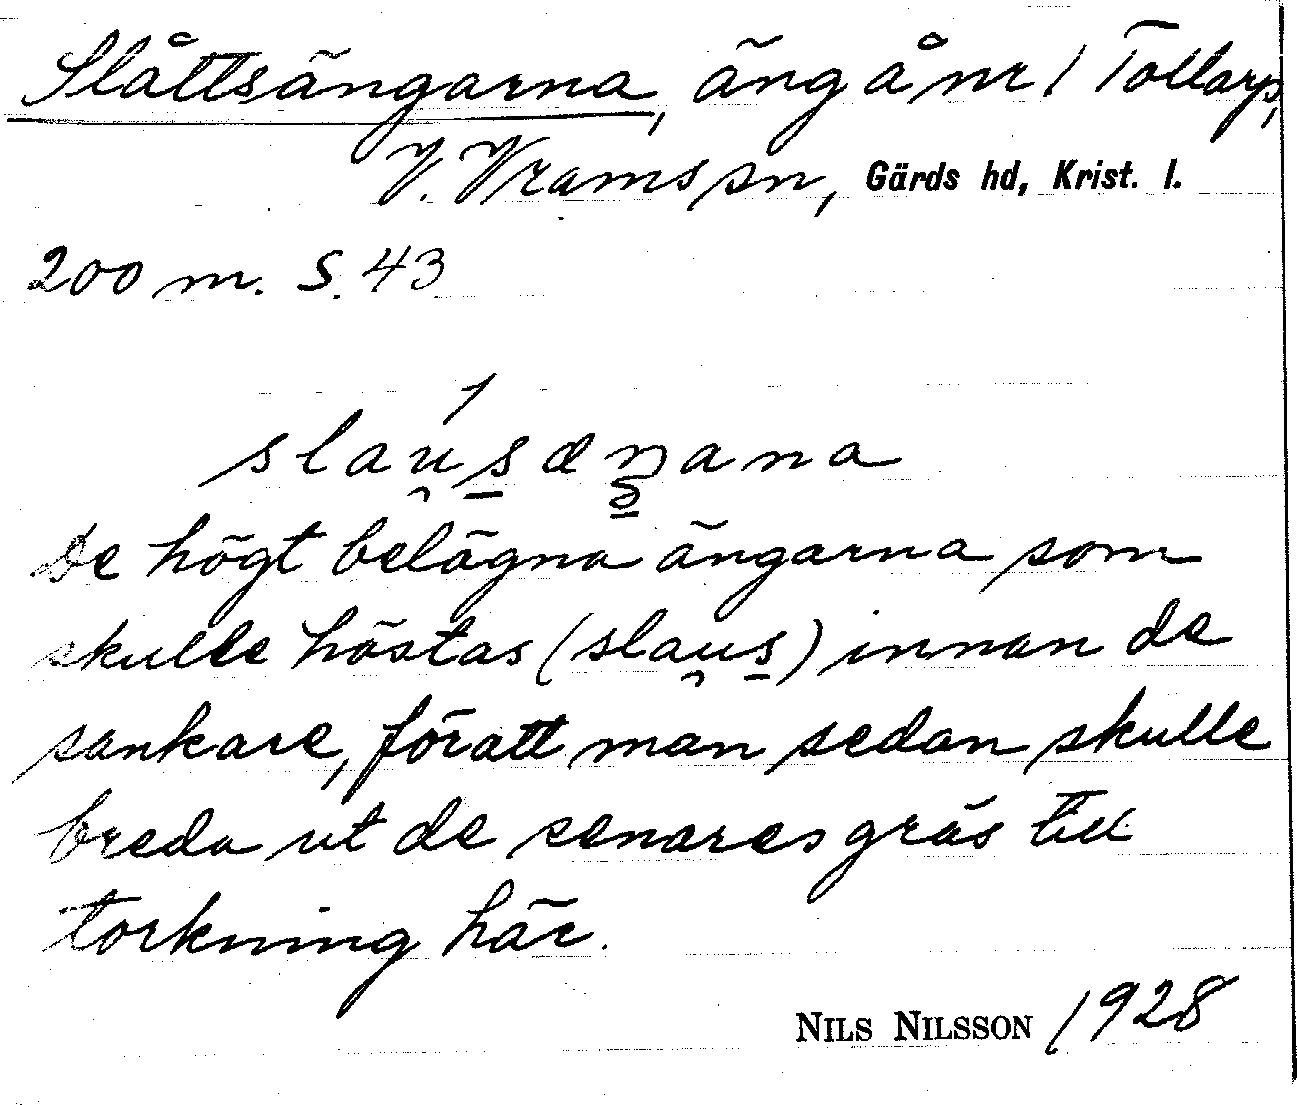 Slåttsängarna, äng å nr 1 Tollarp,
V. Vrams sn, Gärds hd, Krist. l.
200 m. S. 43
slau̯s̱æŋana
De högt belägna ängarna som
skulle höstas (slau̯s̱) innan de
sankare, föratt man sedan skulle
breda ut de senares gräs till
torkning här.
NILS NILSSON 1928